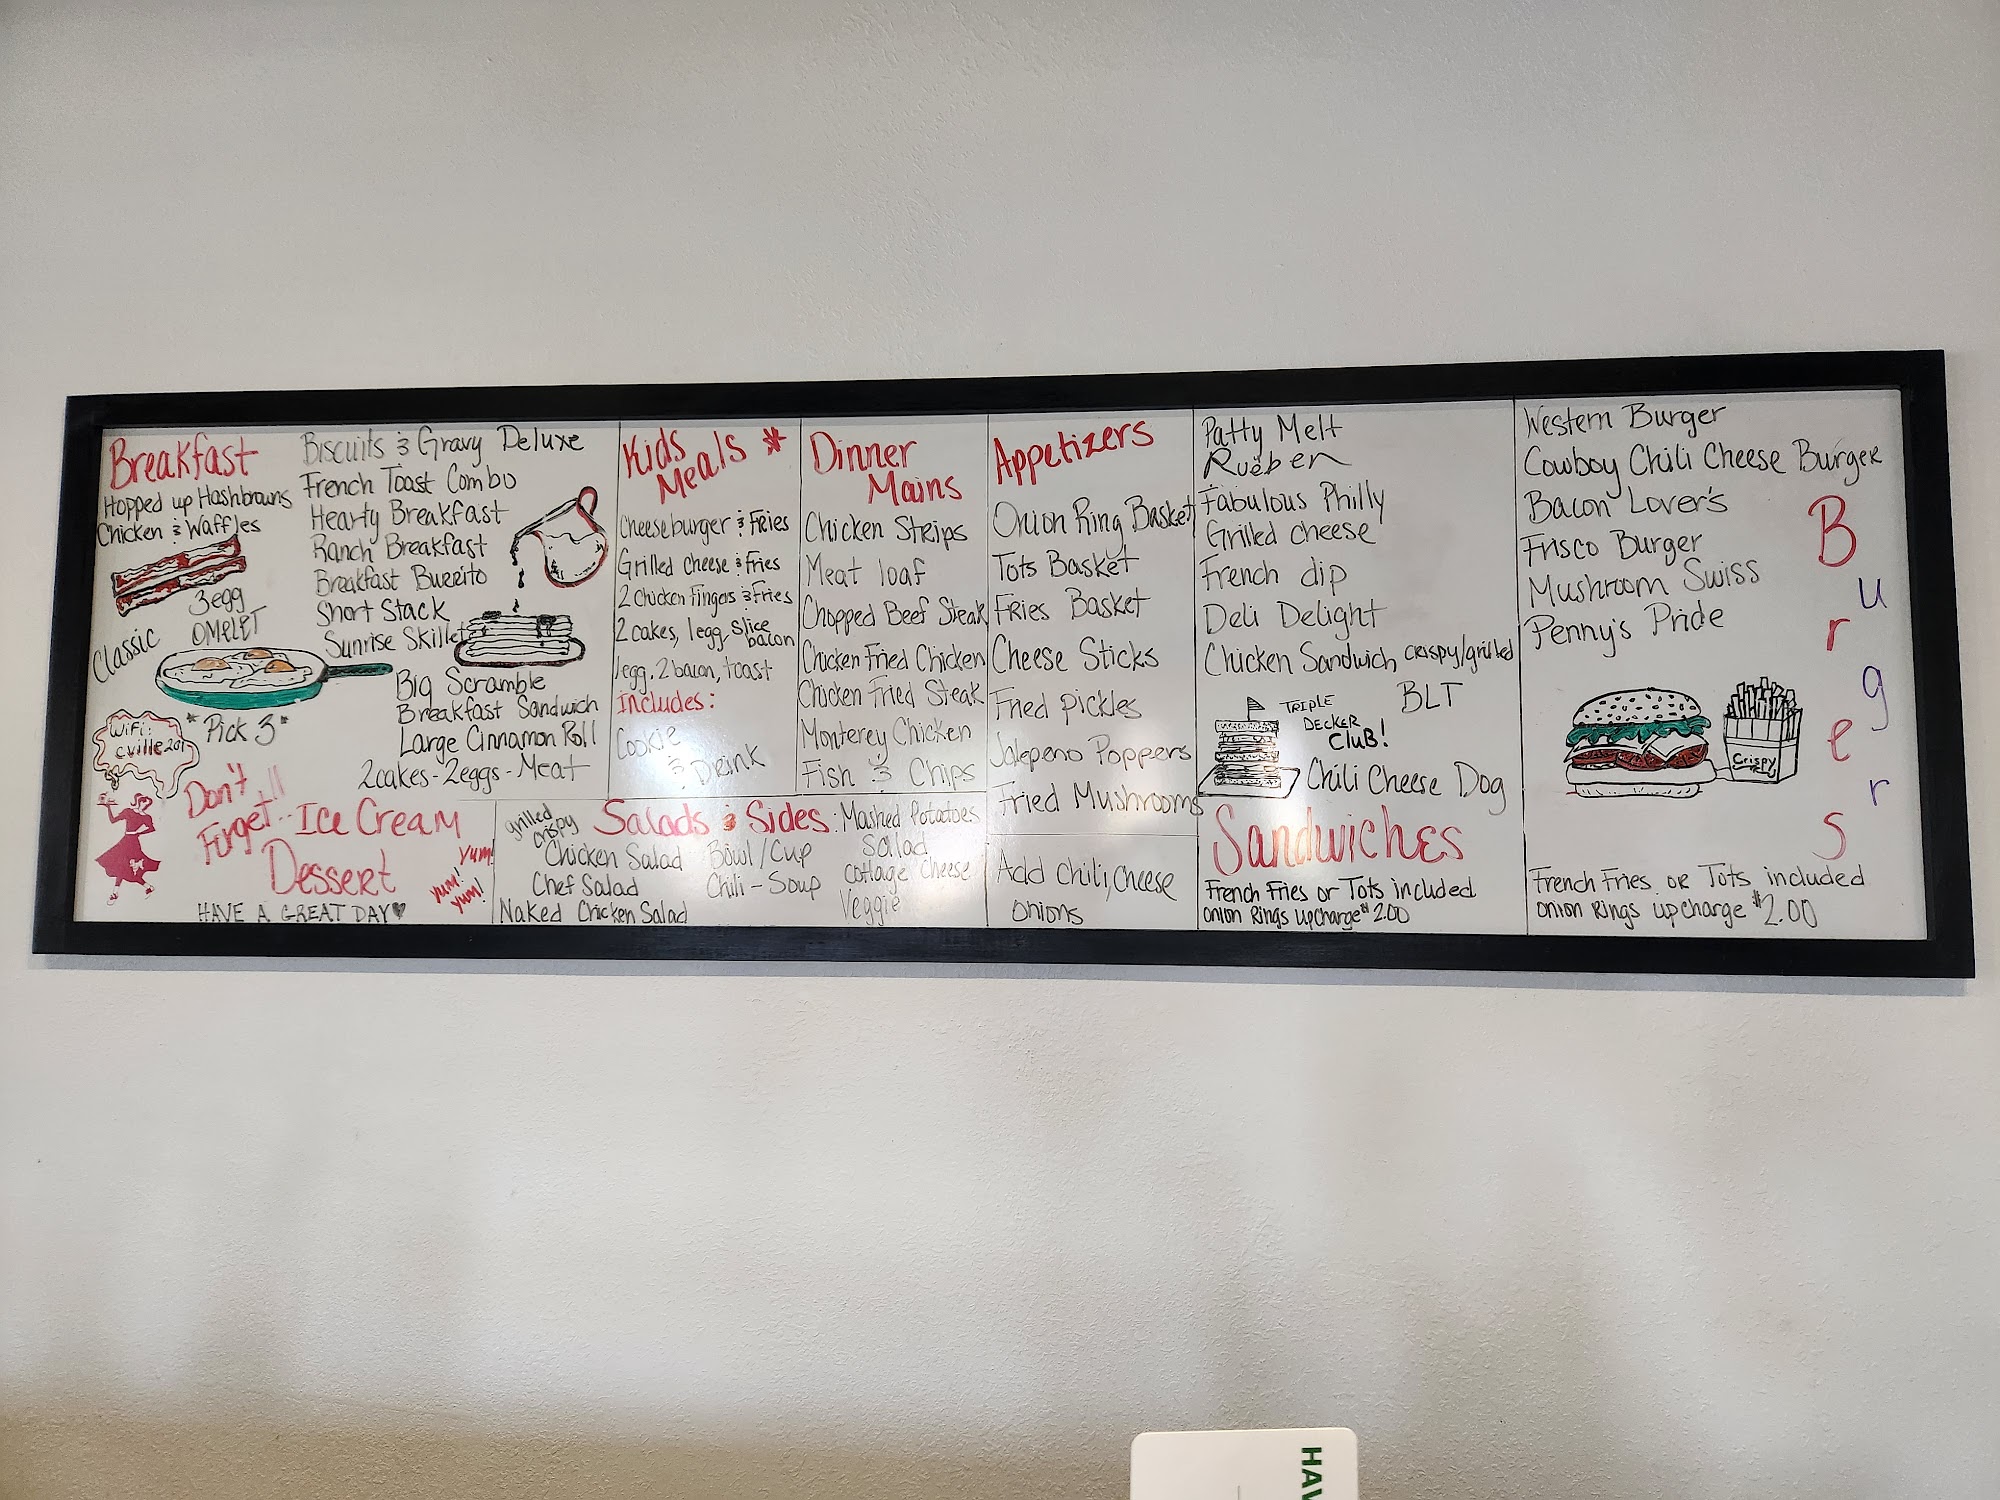 Breakfast
Hopped up Hashbrowns
Chicken & Waffles
3egg
OMELET
Classic
"Pick 3"
WiFi:
cville201
Biscuits & Gravy Deluxe
French Toast Combo
Hearty Breakfast
Ranch Breakfast
Breakfast Burrito
Short Stack
Sunrise Skillet
Big Scramble
Breakfast Sandwich
Large Cinnamon Roll
2cakes-2eggs-Meat
Don't
Forget!!..
Ice Cream
Dessert
yum!
yum!
yum!
HAVE A GREAT DAY♥
Kids
Meals *
Cheeseburger & Fries
Grilled Cheese & Fries
2 Chicken Fingers & Fries
2 cakes, 1egg, slice
bacon
1egg, 2 bacon, toast
Includes:
Cookie
& Drink
Dinner
Mains
Chicken Strips
Meat loaf
Chopped Beef Steak
Chicken Fried Chicken
Chicken Fried Steak
Monterey Chicken
Fish & Chips
Salads & Sides:
grilled
crispy
Chicken Salad
Chef Salad
Naked Chicken Salad
Bowl/Cup
Chili-Soup
Mashed Potatoes
Salad
cottage cheese
Veggie
Appetizers
Onion Ring Basket
Tots Basket
Fries Basket
Cheese Sticks
Fried pickles
Jalepeno Poppers
Fried Mushrooms
Add chili, cheese
onions
Patty Melt
Rueben
Fabulous Philly
Grilled cheese
French dip
Deli Delight
Chicken Sandwich crispy/grilled
BLT
TRIPLE
DECKER
CLUB!
Chili Cheese Dog
Sandwiches
French Fries or Tots included
Onion Rings upcharge $2.00
Western Burger
Cowboy Chili Cheese Burger
Bacon Lover's
Frisco Burger
Mushroom Swiss
Penny's Pride
Burgers
Crispy
French Fries or Tots included
Onion Rings upcharge $2.00
HAV